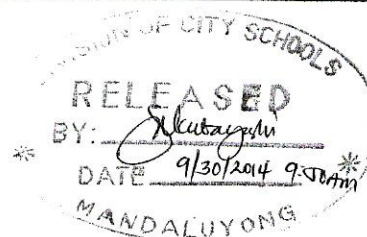 DIVISION OF CITY SCHOOLS
RELEASED
BY:
DATE 9/30/2014
MANDALUYONG